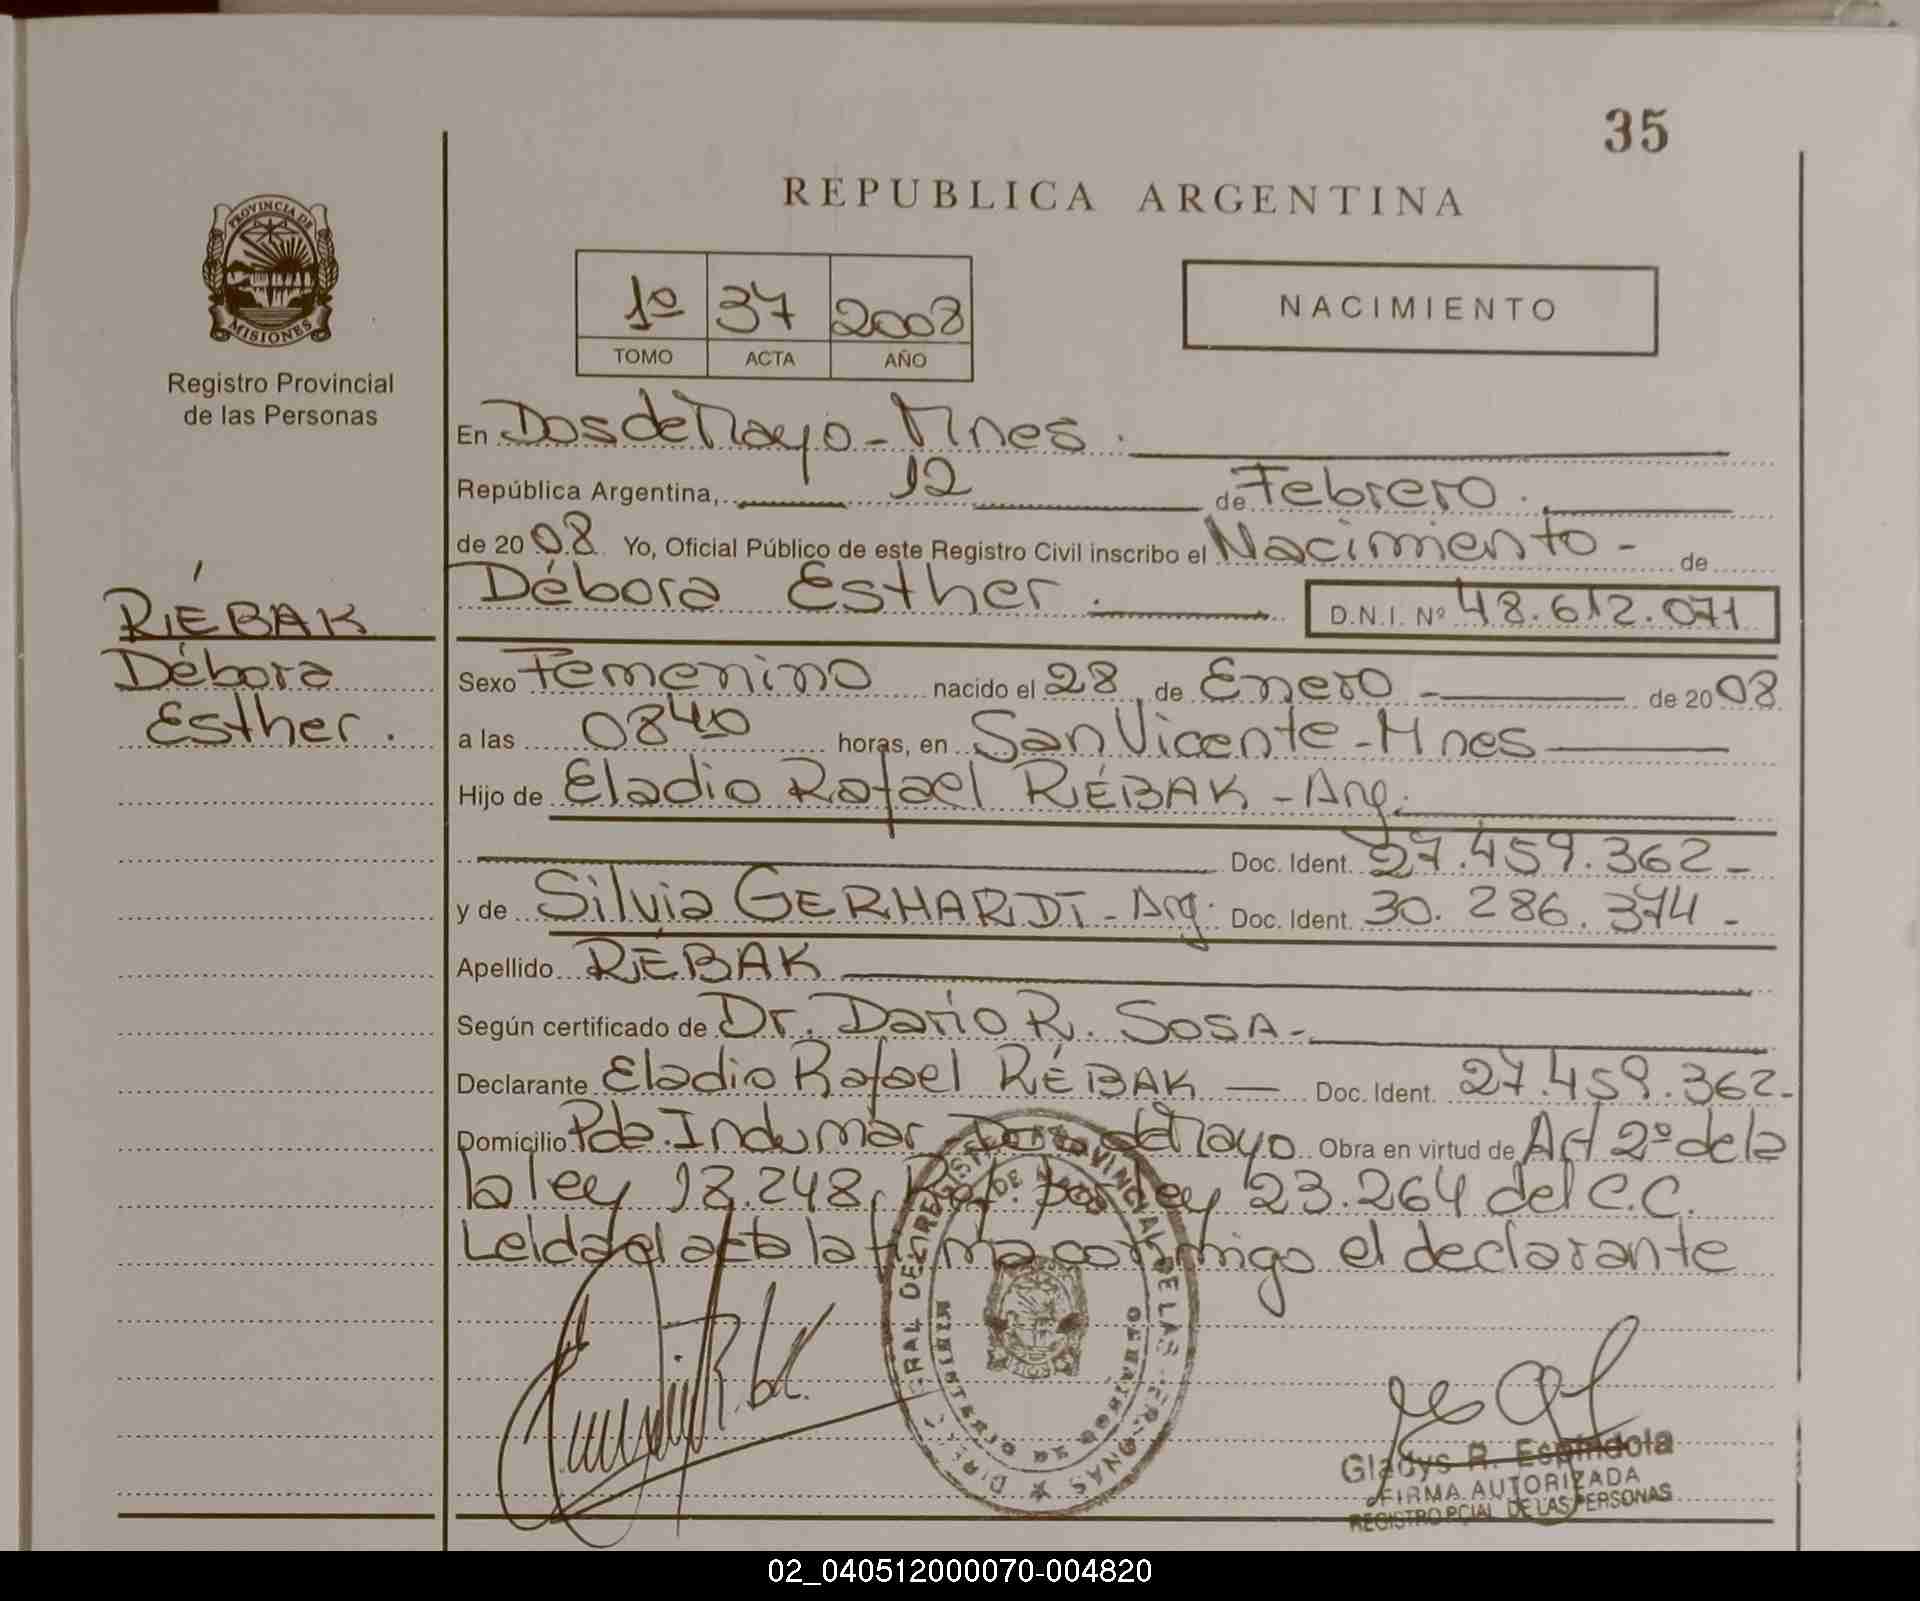 35
REPUBLICA ARGENTINA
PROVINCIA DE MISIONES
Registro Provincial
de las Personas
1º 37 2008
TOMO ACTA AÑO
NACIMIENTO
En Dos de Mayo - Mnes.
República Argentina, 12 de Febrero.
de 2008 Yo, Oficial Público de este Registro Civil inscribo el Nacimiento - de
Débora Esther. D.N.I. Nº 48.612.071
RÉBAK
Débora
Esther.
Sexo Femenino nacido el 28 de Enero - de 2008
a las 0840 horas, en San Vicente - Mnes
Hijo de Eladio Rafael RÉBAK - Arg.
Doc. Ident. 27.459.362 -
y de Silvia GERHARDT - Arg. Doc. Ident. 30.286.374 -
Apellido RÉBAK
Según certificado de Dr. Dario R. SOSA -
Declarante Eladio Rafael RÉBAK — Doc. Ident. 27.459.362 -
Domicilio Pde. Indumar Dos de Mayo Obra en virtud de Art 2º de la
la ley 18.248, Ref. por ley 23.264 del C.C.
Leida el acta la firma conmigo el declarante
Gladys R. Espindola
FIRMA AUTORIZADA
REGISTRO PCIAL DE LAS PERSONAS
02_040512000070-004820